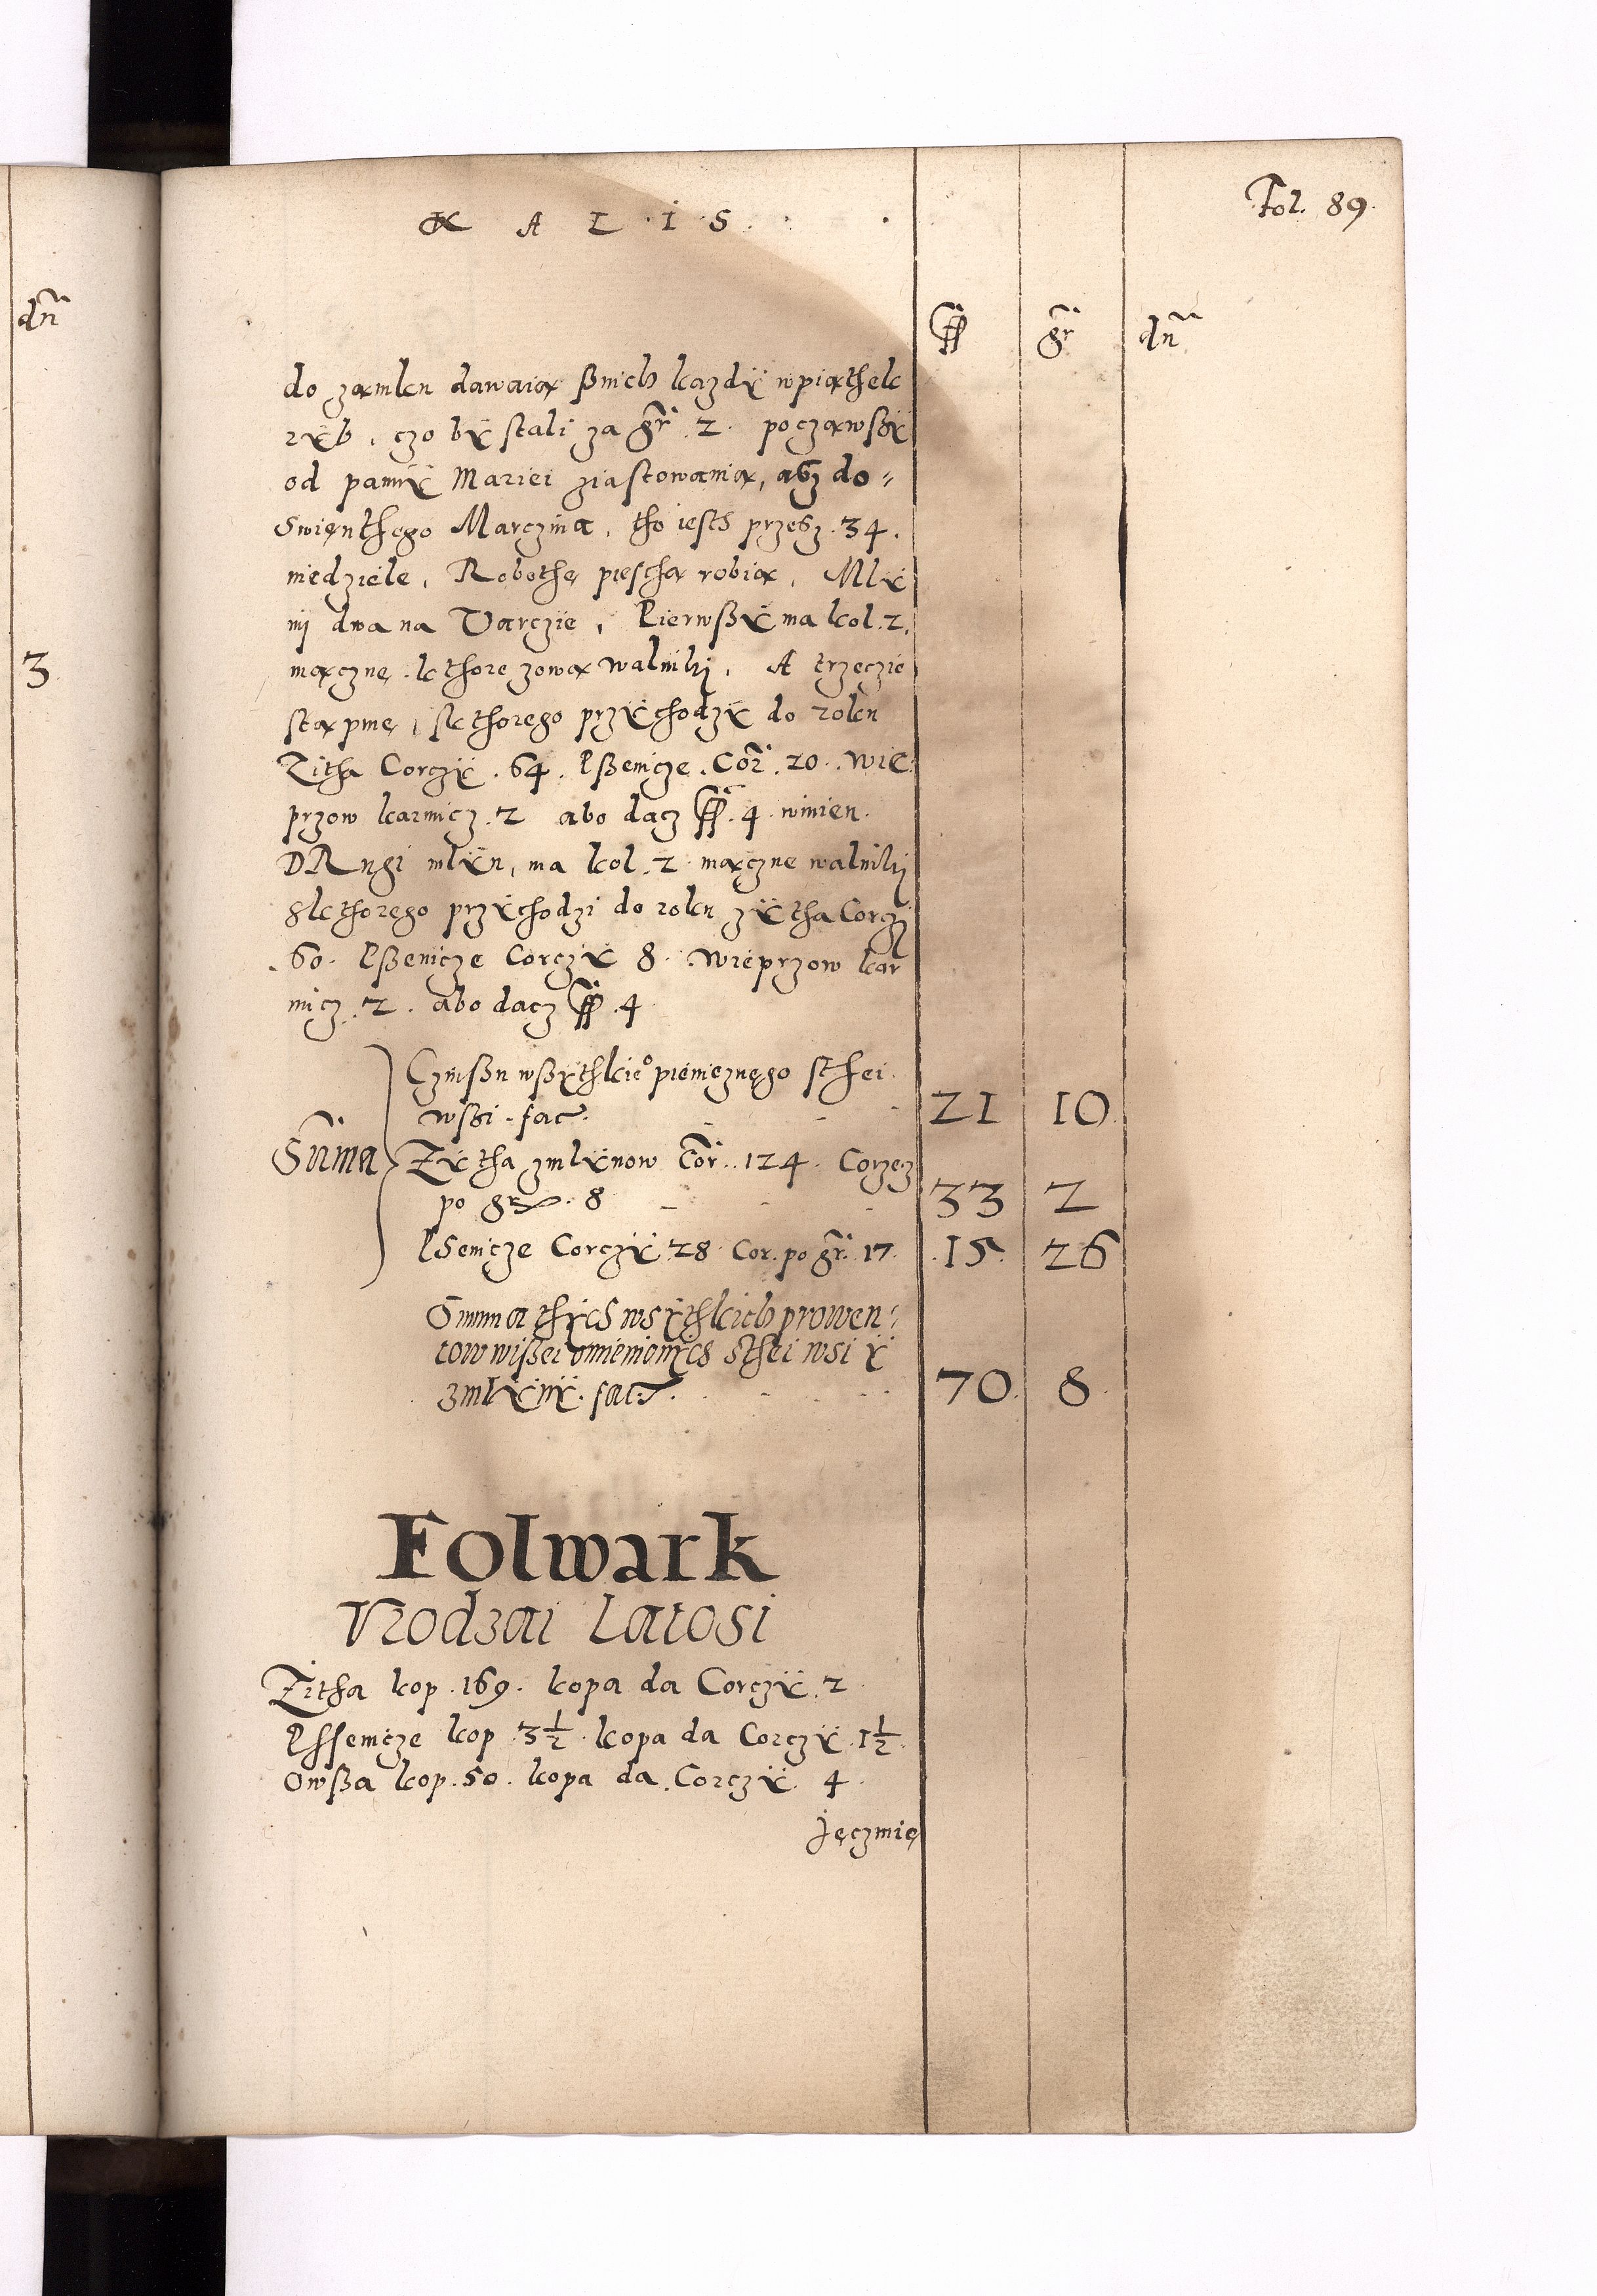 dñ
3
K A L I S
Fol. 89.
ff gr dn
do zamku dawaią ßnich każdÿ wpiąthek
rÿb, czo bÿ stali za gr. 2. począwßÿ
od pannÿ Mariei ziastowania, asz do=
Swięnthego Marczina, tho iesth przesz .34.
niedziele, Robothę pieschą robią, Mlÿ
nÿ dwa na Warczie, Pierwßÿ ma kol .2.
mączne kthore zową walnikÿ, A trzeczie
stąpne, skthorego przÿchodzÿ do rokn
Zitha Corczÿ .64. Pßenicze. Cor .20. Wie
przow karnicz .2 abo dacz ff .4. winien.
DRugi mlÿn, ma kol .2. mączne walnikÿ
skthorego przÿchodzi do roku zÿtha Corczÿ
60. Pßenicze Corczÿ 8. Wieprzow kar
nicz .2. abo dacz ff .4
Czinßu wßÿthkie° pienięznęgo sthei
wßi. fac. 21 10
Suma Zÿtha zmlÿnow Cor. .124. Corzecz
po gr. 8 33 2
Psenicze Corczÿ 28 Cor. po gr. 17. 15 26
Summa thÿch wsÿthkich prowen=
tow wißei omienionÿch sthei wsi ÿ
zmlÿnÿ. fac. 70 8
Folwark
Vrodzai Latosi
Zitha kop .169. kopa da Corczÿ .2
Pssenicze kop .3½. kopa da Corczÿ .1½.
Owßa kop .50. kopa da Corczÿ. 4.
Jęczmię